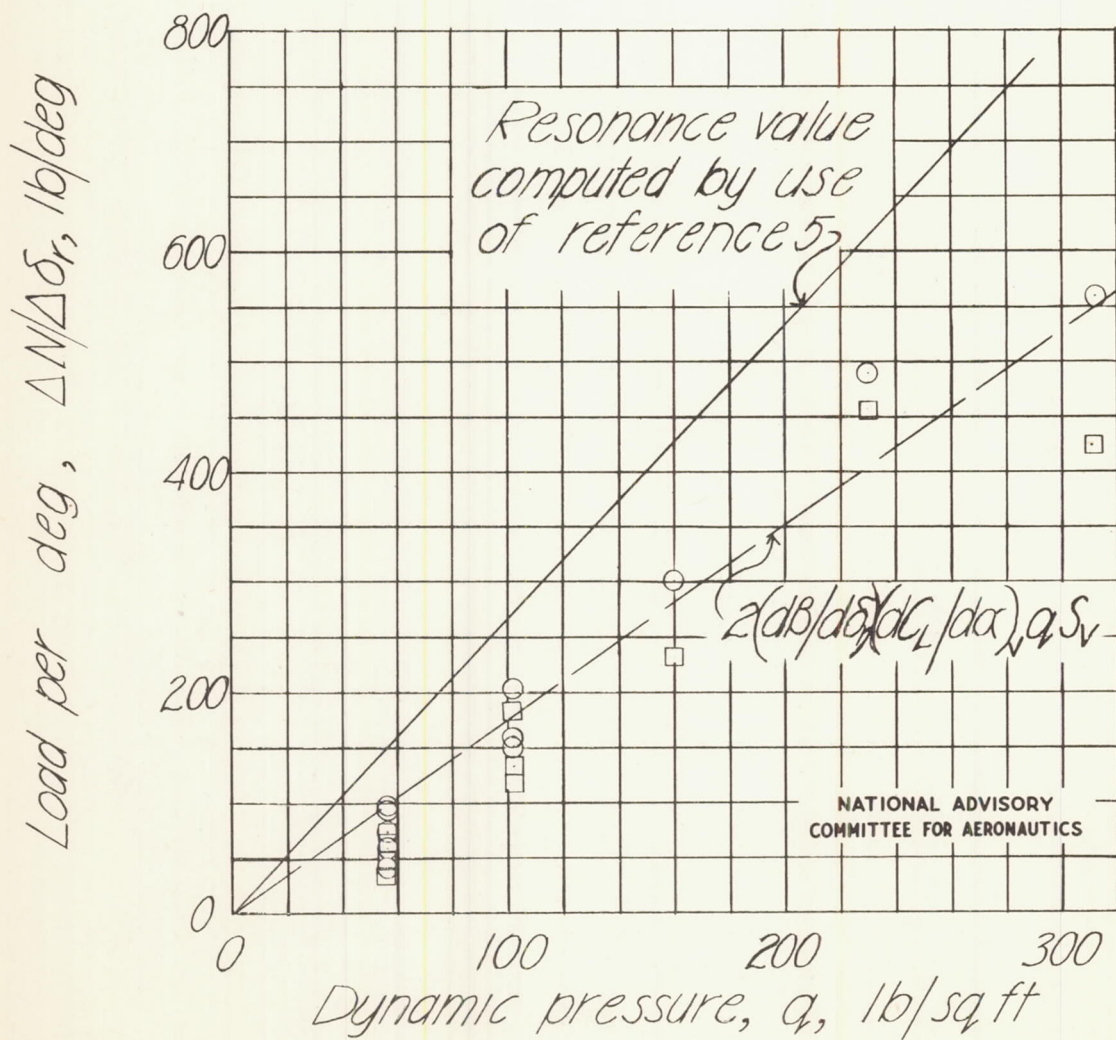 800
600
400
200
0
Load per deg, ΔN/Δδr, lb/deg
Resonance value
computed by use
of reference 5
2(dβ/dδr)(dCL/dα)v q Sv
NATIONAL ADVISORY
COMMITTEE FOR AERONAUTICS
0 100 200 300
Dynamic pressure, q, lb/sq ft